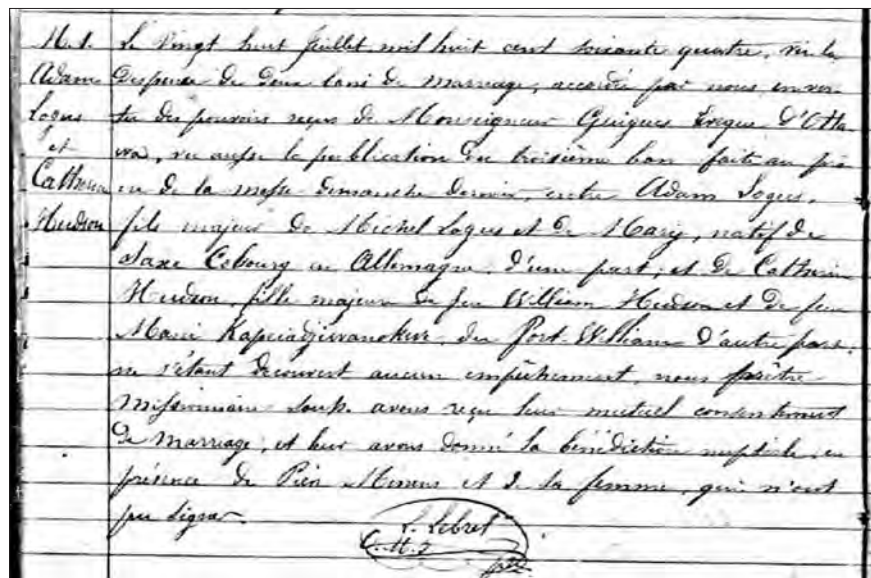 M. 1. Le Vingt huit Juillet mil huit cent soixante quatre, vu la
Adam dispense de deux bans de marriage, accordée par nous en ver
Logus tu des pouvoirs reçus de Monseigneur Guigues Evêque d'Otta
et wa, vu aussi la publication du troisième ban faite au prô
Catherin ne de la messe dimanche dernier, entre Adam Logus,
Hudson fils majeur de Michel Logus et de Mary, natif de
Saxe Cobourg en Allemagne, d'une part; et de Catherin
Hudson, fille majeur de feu William Hudson et de feu
Marie du Fort-William d'autre part,
ne s'étant decouvert aucun empêchement, nous prêtre
missionnaire avons reçu leur mutuel consentement
de marriage, et leur avons donné la bénédiction nuptiale, en
présence de et de sa femme, qui n'ont
pu signer.
L. Lebret
O.M.J
ptre